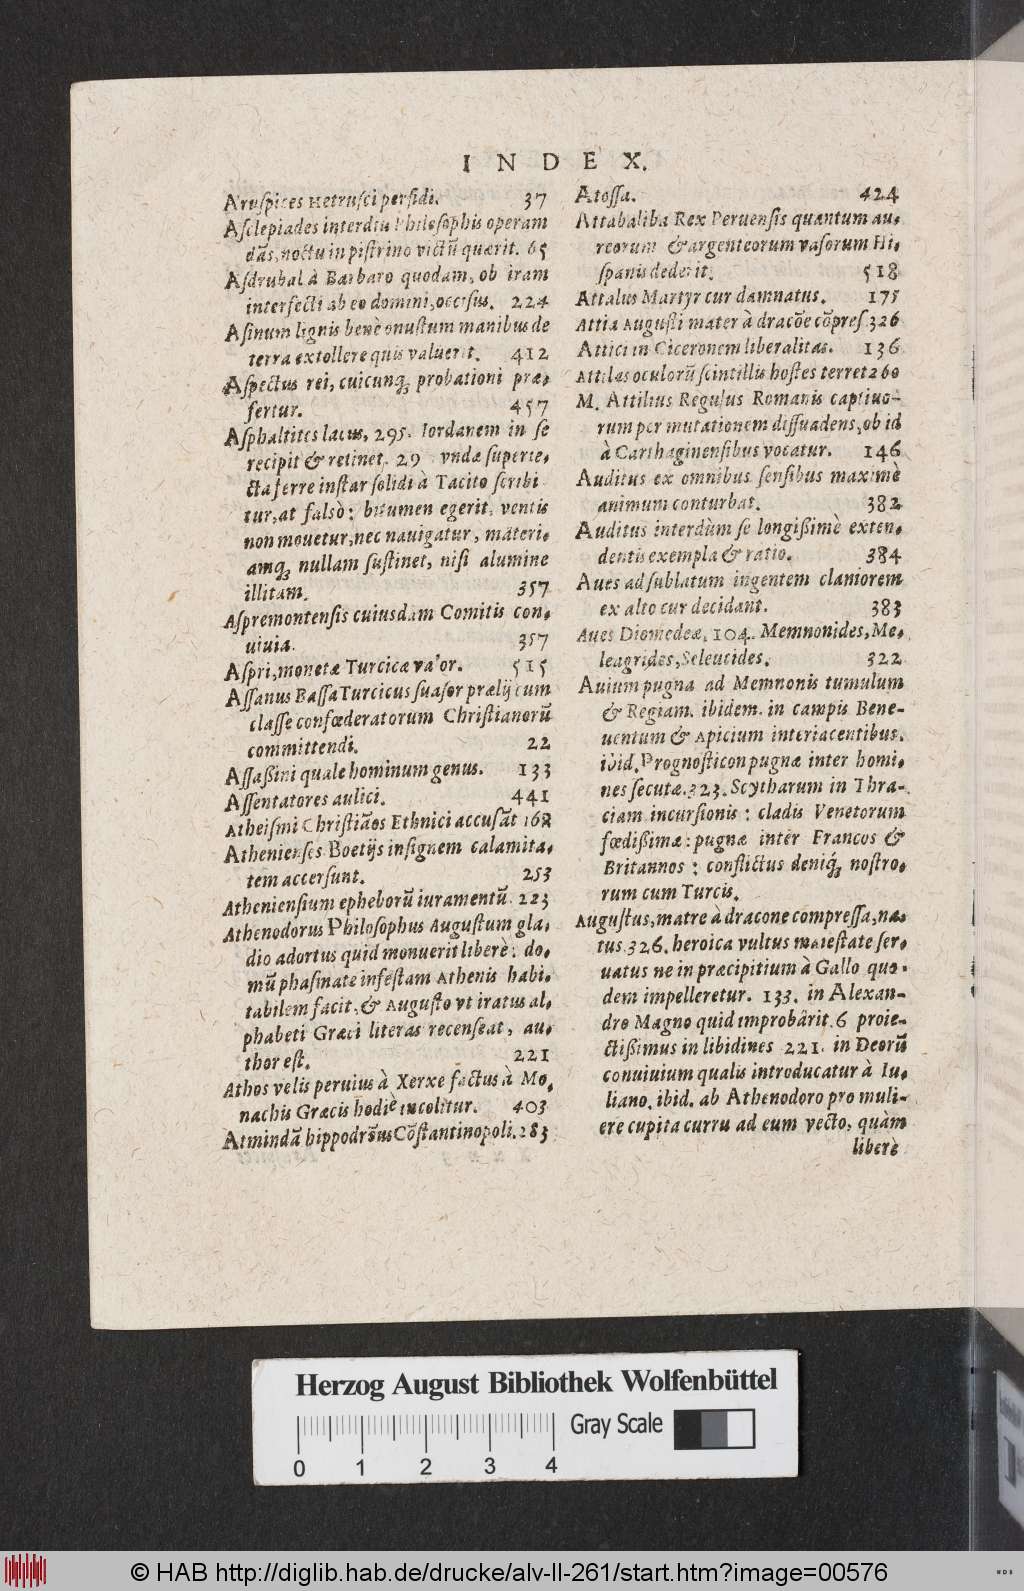 INDEX.
Aruspices Hetrusci perfidi. 37
Asclepiades interdiu Philosophis operam
dãs, noctu in pistrino victũ quærit. 65
Asdrubal à Barbaro quodam, ob iram
interfecti ab eo domini, occisus. 224
Asinum lignis benè onustum manibus de
terra extollere quis valuerit. 412
Aspectus rei, cuicunq; probationi præ-
fertur. 457
Asphaltites lacus, 295. Iordanem in se
recipit & retinet. 29 vndæ superie-
cta ferre instar solidi à Tacito scribi
tur, at falsò: bitumen egerit, ventis
non mouetur, nec nauigatur, materi-
amq; nullam sustinet, nisi alumine
illitam. 357
Aspremontensis cuiusdam Comitis con-
uiuia. 357
Aspri, monetæ Turcicæ valor. 515
Assanus Bassa Turcicus suasor prælij cum
classe confœderatorum Christianorũ
committendi. 22
Assaßini quale hominum genus. 133
Assentatores aulici. 441
Atheismi Christiãos Ethnici accusãt 162
Athenienses Boetijs insignem calamita-
tem accersunt. 253
Atheniensium epheborũ iuramentũ. 223
Athenodorus Philosophus Augustum gla-
dio adortus quid monuerit liberè: do-
mũ phasmate infestam Athenis habi-
tabilem facit, & Augusto vt iratus al-
phabeti Græci literas recenseat, au-
thor est. 221
Athos velis peruius à Xerxe factus à Mo-
nachis Græcis hodiè incolitur. 403
Atmindã hippodrõus Cõstantinopoli. 283
Atossa. 424
Attabaliba Rex Peruensis quantum au-
reorum & argenteorum vasorum Hi-
spanis dederit. 518
Attalus Martyr cur damnatus. 175
Attia Augusti mater à dracõe cõpres. 326
Attici in Ciceronem liberalitas. 136
Attilas oculorũ scintillis hostes terret 260
M. Attilius Regulus Romanis captiuo-
rum permutationem dissuadens, ob id
à Carthaginensibus vocatur. 146
Auditus ex omnibus sensibus maximè
animum conturbat. 382
Auditus interdùm se longißimè exten-
dentis exempla & ratio. 384
Aues ad sublatum ingentem clamorem
ex alto cur decidant. 383
Aues Diomedeæ, 104. Memnonides, Me-
leagrides, Seleucides. 322
Auium pugna ad Memnonis tumulum
& Regiam. ibidem. in campis Bene-
uentum & Apicium interiacentibus.
ibid. Prognosticon pugnæ inter homi-
nes secutæ. 323. Scytharum in Thra-
ciam incursionis: cladis Venetorum
fœdißimæ: pugnæ inter Francos &
Britannos: conflictus deniq́; nostro-
rum cum Turcis.
Augustus, matre à dracone compressa, na-
tus. 326. heroica vultus maiestate ser-
uatus ne in præcipitium à Gallo quo-
dem impelleretur. 133. in Alexan-
dro Magno quid improbârit. 6 proie-
ctißimus in libidines 221. in Deorũ
conuiuium qualis introducatur à Iu-
liano. ibid. ab Athenodoro pro muli-
ere cupita curru ad eum vecto, quàm
liberè
Herzog August Bibliothek Wolfenbüttel
Gray Scale
0 1 2 3 4
© HAB http://diglib.hab.de/drucke/alv-ll-261/start.htm?image=00576